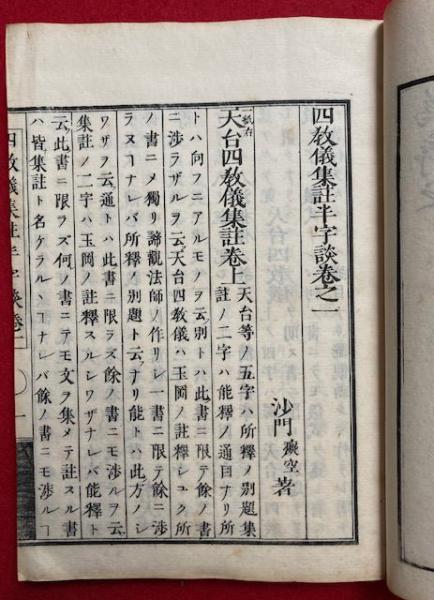 四教儀集註半字談卷之一
沙門癡空著
一紙右
天台四教儀集註卷上 天台等ノ五字ハ所釋ノ別題集
註ノ二字ハ能釋ノ通目ナリ所
トハ向フニアルモノヲ云別トハ此書ニ限テ餘ノ書
ニ渉ラザルヲ云天台四教儀ハ玉岡ノ註釋シユク所
ノ書ニメ獨リ諦觀法師ノ作リシ一書ニ限テ餘ニ渉
ラヌヿナレバ所釋ノ別題ト云ナリ能トハ此方ノシ
ワザヲ云通トハ此書ニ限ラズ餘ノ書ニモ渉ルヲ云
集註ノ二字ハ玉岡ノ註釋スルシワザナレバ能釋ト
云此書ニ限ラズ何ノ書ニテモ文ヲ集メテ註スル書
ハ皆集註ト名ケラルヽヿナレバ餘ノ書ニモ渉ルヿ
四教儀集註半字談卷一
一